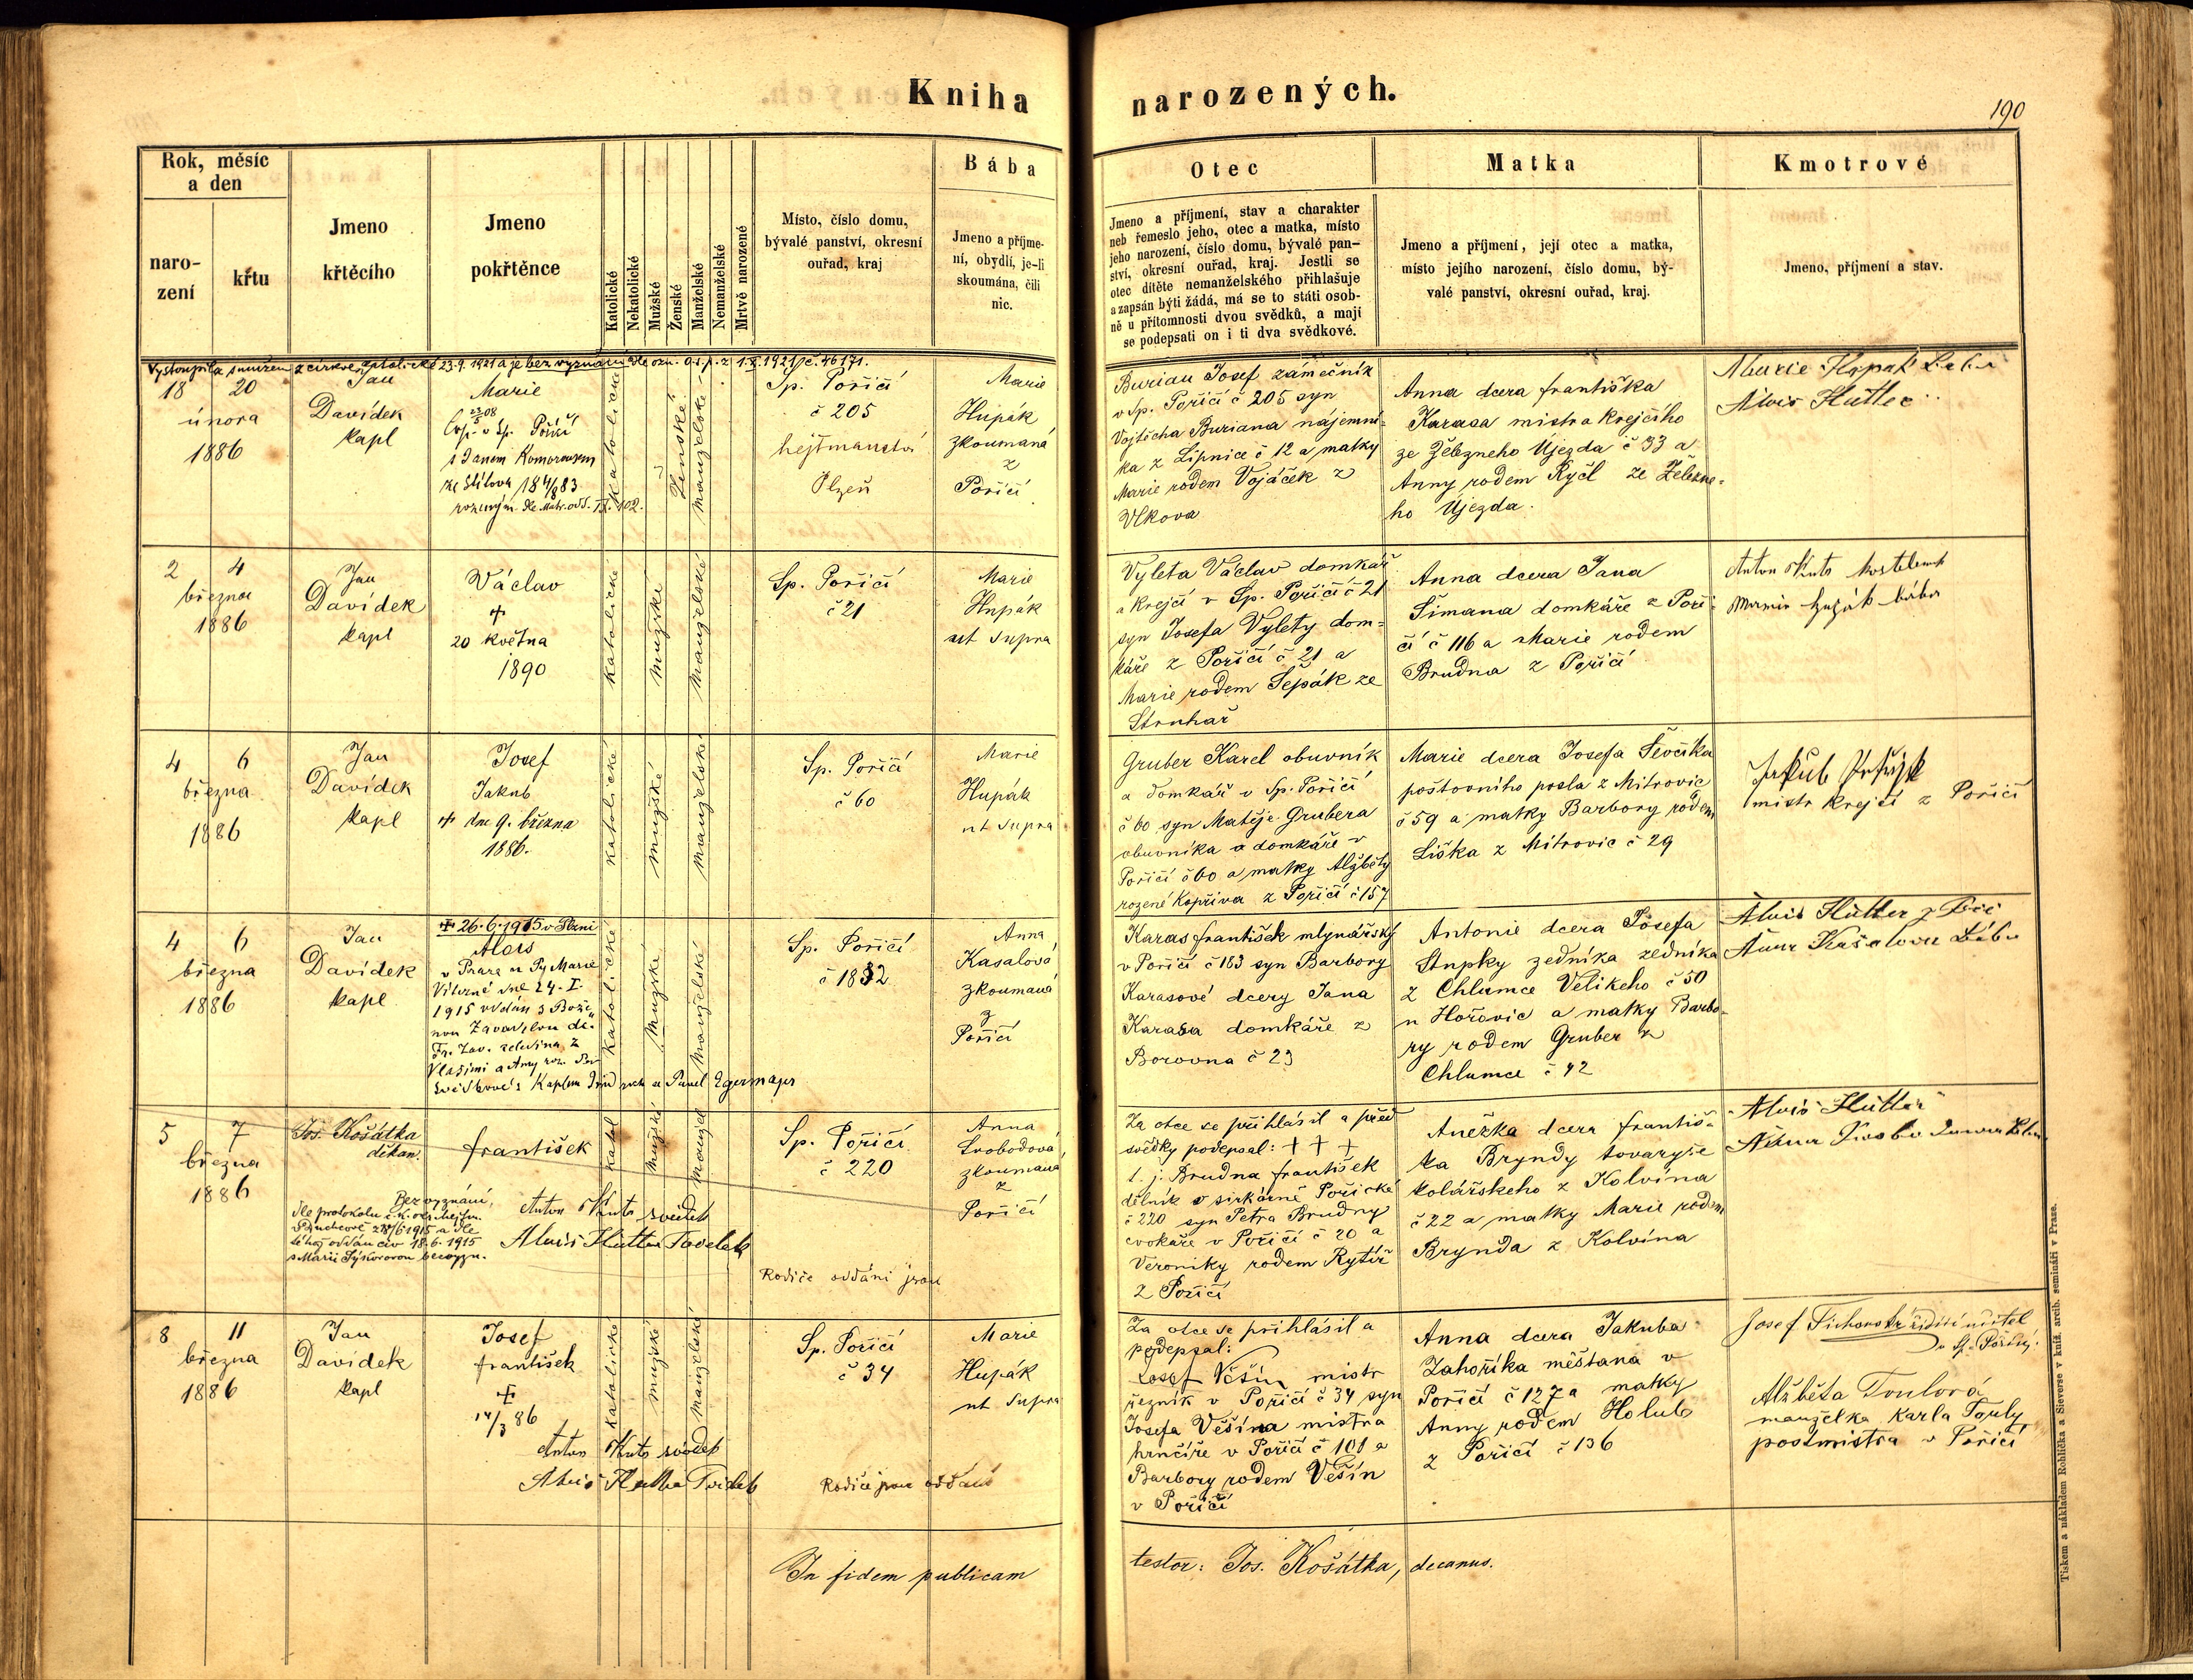 Kniha narozených.
190
Rok, měsíc
a den
naro-
zení
křtu
Jmeno
křtěcího
Jmeno
pokřtěnce
Katolické
Nekatolické
Mužské
Ženské
Manželské
Nemanželské
Mrtvě narozené
Místo, číslo domu,
bývalé panství, okresní
ouřad, kraj
Bába
Jmeno a příjme-
ní, obydlí, je-li
skoumána, čili
nic.
Otec
Jmeno a příjmení, stav a charakter
neb řemeslo jeho, otec a matka, místo
jeho narození, číslo domu, bývalé pan-
ství, okresní ouřad, kraj. Jestli se
otec dítěte nemanželského přihlašuje
a zapsán býti žádá, má se to státi osob-
ně u přítomnosti dvou svědků, a mají
se podepsati on i ti dva svědkové.
Matka
Jmeno a příjmení, její otec a matka,
místo jejího narození, číslo domu, bý-
valé panství, okresní ouřad, kraj.
Kmotrové
Jmeno, příjmení a stav.
Vystoupila s mužem z církve katolické 23.9.1921 a je bez vyznání dle ozn. o.s.p. z 1.X.1921 č. 46171.
18 20
února
1886
Jan
Davídek
kapl
Marie
v Sp. Poříčí
s Janem Komorousem
ze Štítova 18 4/8 83
rozeným. Dle Matr. odd. IX. 102.
katolické
Ženské
manželské
Sp. Poříčí
č 205
hejtmanství
Plzeň
Marie
Hupák
zkoumaná
z
Poříčí
Burian Josef zámečník
v Sp. Poříčí č 205 syn
Vojtěcha Buriana nájemní-
ka z Lipnice č 12 a matky
Marie rodem Vojáček z
Vlkova
Anna dcera františka
Karasa mistra krejčího
ze Železneho Ujezda č 33 a
Anny rodem Ryčl ze Železne-
ho Újezda.
Marie Hupak baba
Alois Hütter
2 4
března
1886
Jan
Davídek
kapl
Václav
+
20 května
1890
katolické
mužské
manželské
Sp. Poříčí
č 21
Marie
Hupák
ut supra
Vyleta Václav domkář
a krejčí v Sp. Poříčí č 21
syn Josefa Vylety dom-
káře z Poříčí č 21 a
Marie rodem Šepák ze
Struhař
Anna dcera Jana
Šimana domkáře z Poří-
čí č 116 a Marie rodem
Brudna z Poříčí
Anton Kuts kostelník
Marie Hupák bába
4 6
března
1886
Jan
Davídek
kapl
Josef
Jakub
+ dne 9. března
1886.
katolické
mužské
manželské
Sp. Poříčí
č 60
Marie
Hupák
ut supra
Gruber Karel obuvník
a domkář v Sp. Poříčí
č 60 syn Matěje Grubera
obuvníka a domkáře v
Poříčí č 60 a matky Alžběty
rozené Kopřiva z Poříčí č 157
Marie dcera Josefa Ševčíka
poštovního posla z Mitrovic
č 59 a matky Barbory rodem
Liška z Mitrovic č 29
Jakub
mistr krejčí z Poříčí
4 6
března
1886
Jan
Davídek
kapl
+ 26.6.1915 v Plzni
Alois
v Praze u P. Marie
Vítězné dne 24. I.
1915 oddán s Bože-
nou Zavadilou dc.
Fr. Zav. z
Vlašimi a Anny roz.
katolické
Mužské
Manželské
Sp. Poříčí
č 1832
Anna
Kasalová
zkoumaná
z
Poříčí
Karas františek mlynářský
v Poříčí č 183 syn Barbory
Karasové dcery Jana
Karasa domkáře z
Borovna č 23
Antonie dcera Josefa
Stupky zedníka zedníka
z Chlumce Velikeho č 50
u Hořovic a matky Barbo-
ry rodem Gruber z
Chlumce č 42
Alois Hütter z
Anna Kasalova bába
5 7
března
1886
Jos. Košátka
děkan.
františek
katol
mužské
manžel
Sp. Poříčí
č 220
Anna
Svobodová
zkoumaná
z
Poříčí
Bez vyznání,
dle protokolu c.k. okr. hejtm.
a dle
oddán civ. 18.6.1915
s Marií Sýkorovou bezvyzn.
Anton Kuts svědek
Alois Hütter svědek
Rodiče oddáni jsou
Za otce se přihlásil a před
svědky podepsal: + + +
t. j. Brudna františek
dělník v sirkárně Poříčké
č 220 syn Petra Brudny
cvokaře v Poříčí č 20 a
Veroniky rodem Rytíř
z Poříčí
Anežka dcera františ-
ka Bryndy tovaryše
kolářskeho z Kolvína
č 22 a matky Marie rodem
Brynda z Kolvína
Alois Hütter
8 11
března
1886
Jan
Davídek
kapl
Josef
františek
+
14/3 86
katolické
mužské
manželské
Sp. Poříčí
č 34
Marie
Hupák
ut supra
Anton Kuts svědek
Alois Hütter svědek
Rodiče jsou oddáni
Za otce se přihlásil a
podepsal:
Josef Věšín mistr
řezník v Poříčí č 34 syn
Josefa Věšína mistra
hrnčíře v Poříčí č 101 a
Barbory rodem Věšín
v Poříčí
Anna dcera Jakuba
Zahoříka měštana v
Poříčí č 127 a matky
Anny rodem Holub
z Poříčí č 136
Josef Tichanský řídící učitel
v Sp. Poříčí.
Alžběta Toulová
manželka Karla Touly
postmistra v Poříčí
In fidem publicam testor: Jos. Košátka, decanus.
Tiskem a nákladem Rohlíčka a Sieverse v kníž. arcib. semináři v Praze.